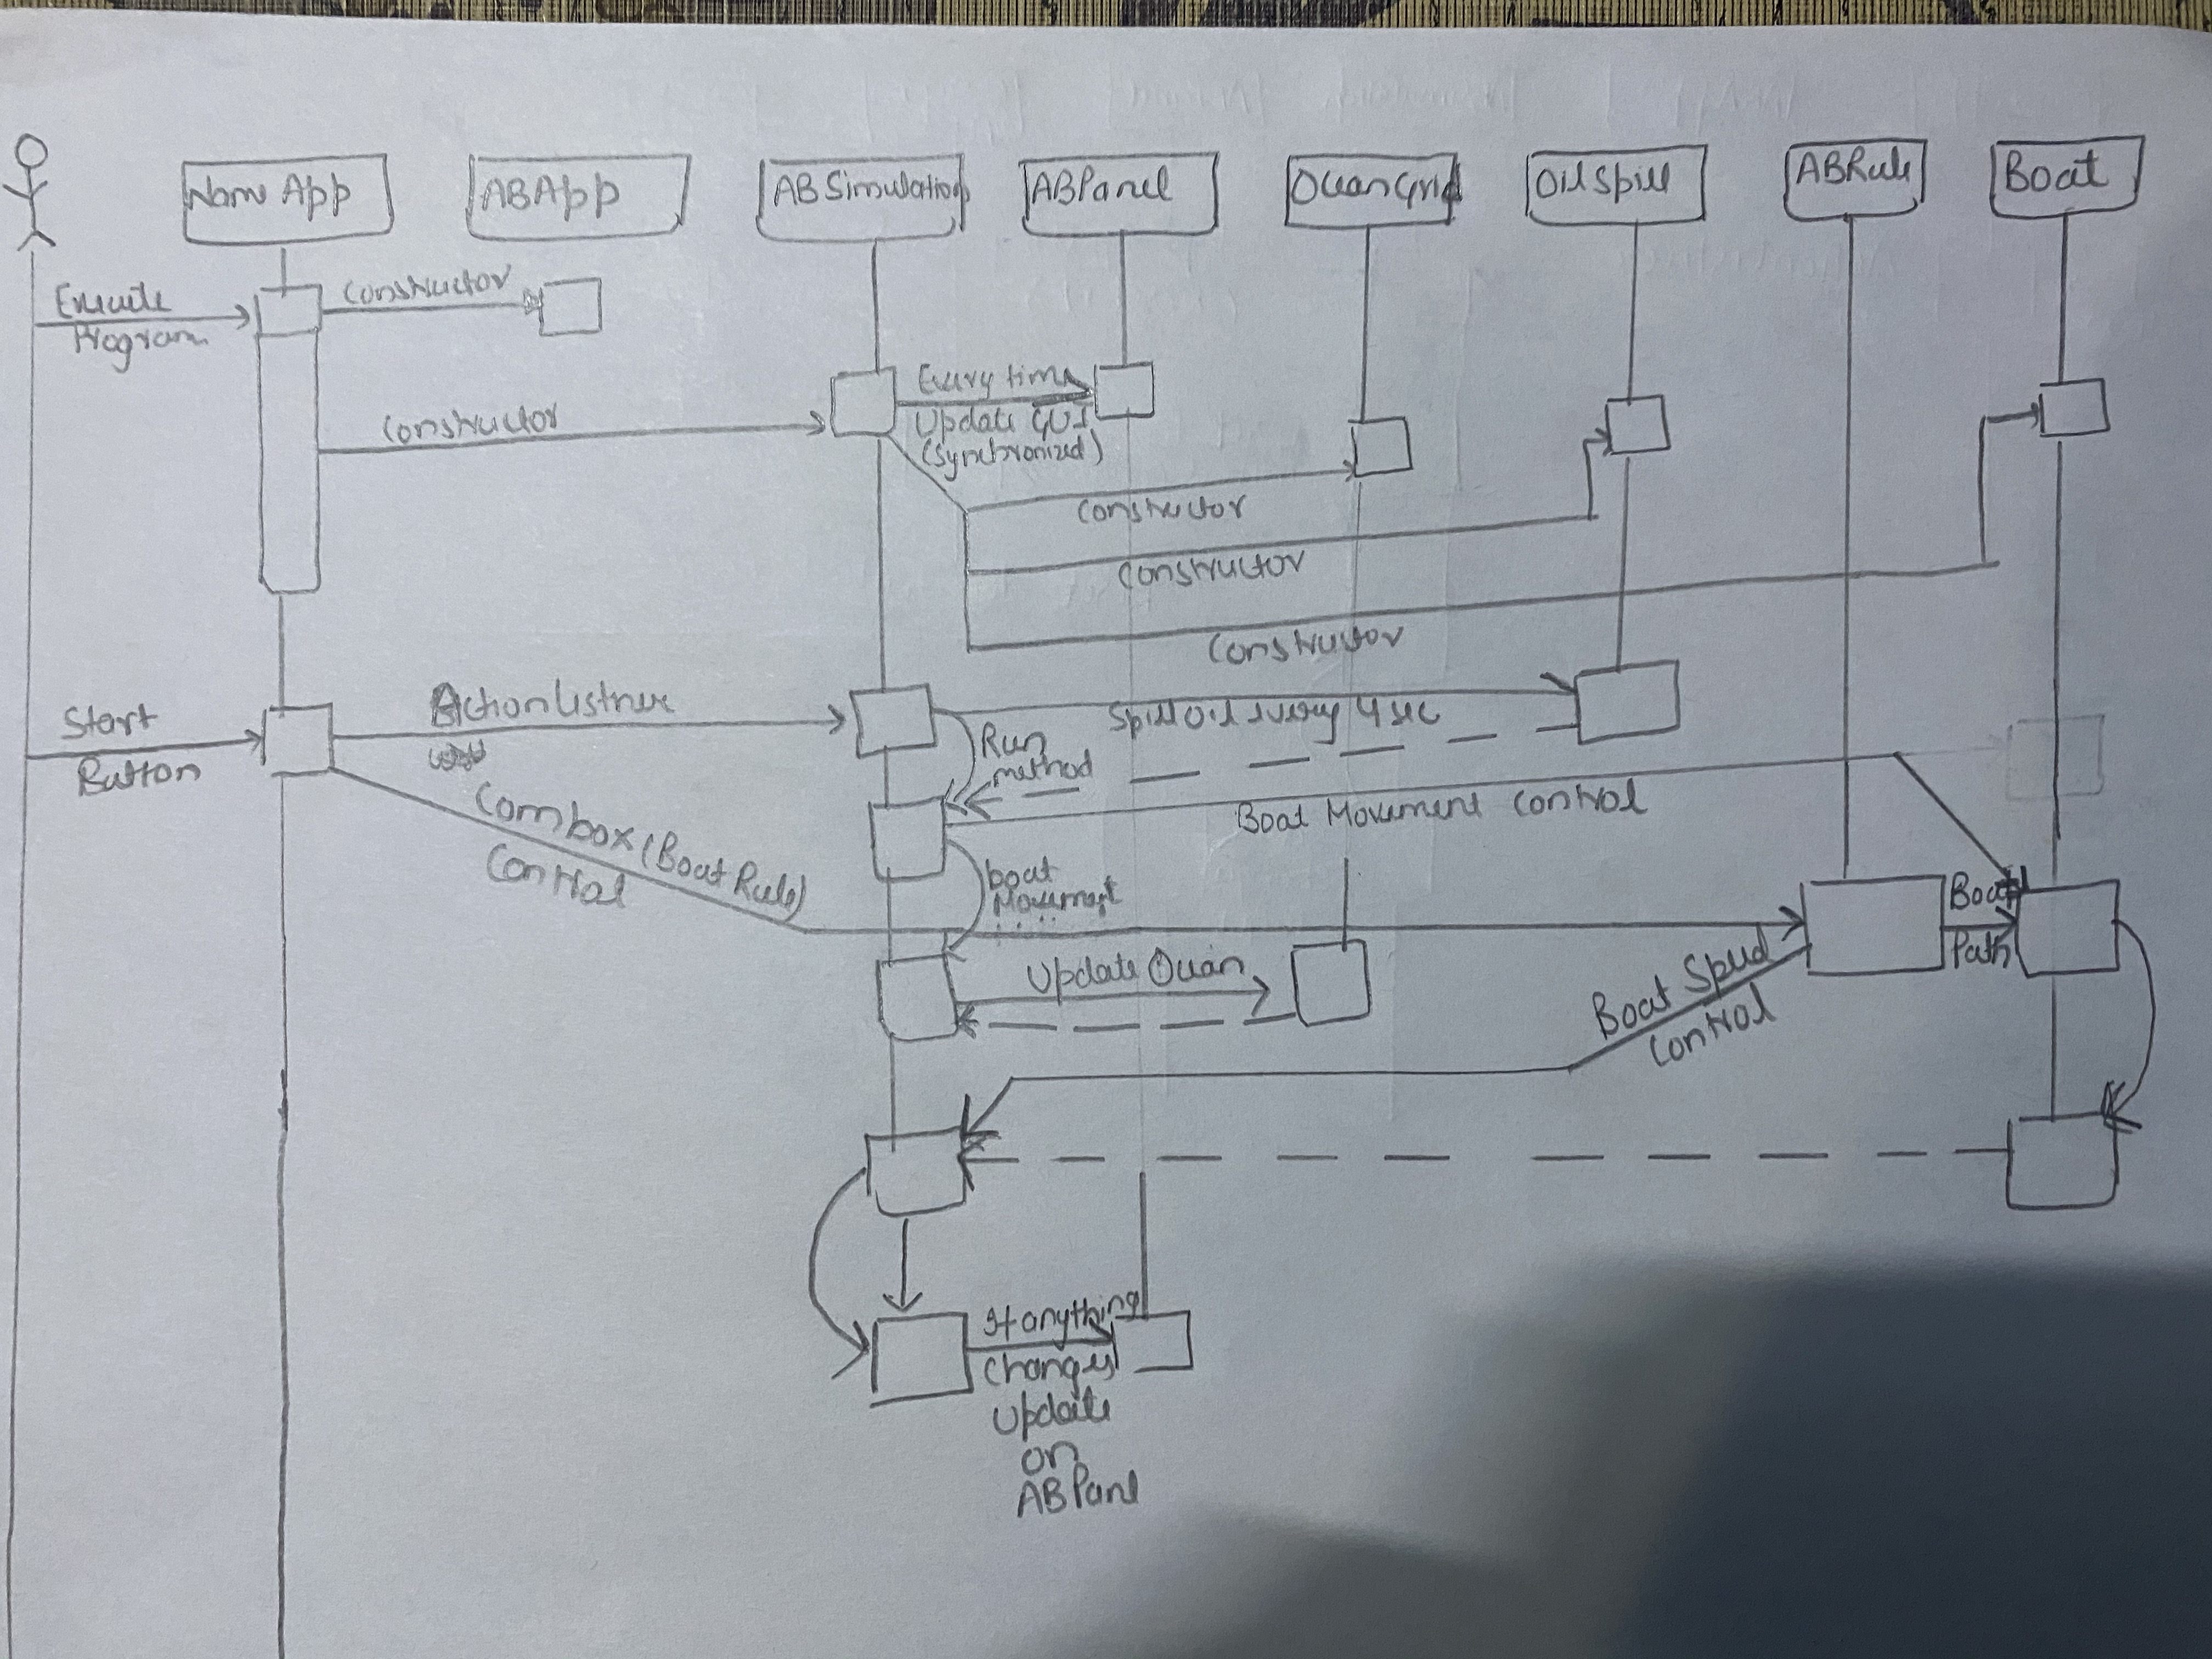 Name App
ABApp
ABSimulation
ABPanel
OceanGrid
OilSpill
ABRule
Boat
Execute
Program
Constructor
Constructor
Every time
Update GUI
(Synchronized)
Constructor
Constructor
Constructor
Start
Button
ActionListner
Spill Oil every 4 sec
Run
method
Boat Movement Control
Combox (Boat Rule)
Control
boat
Movement
Boat
Path
Update Ocean
Boat Speed
Control
If anything
Changes
Update
on
ABPanel